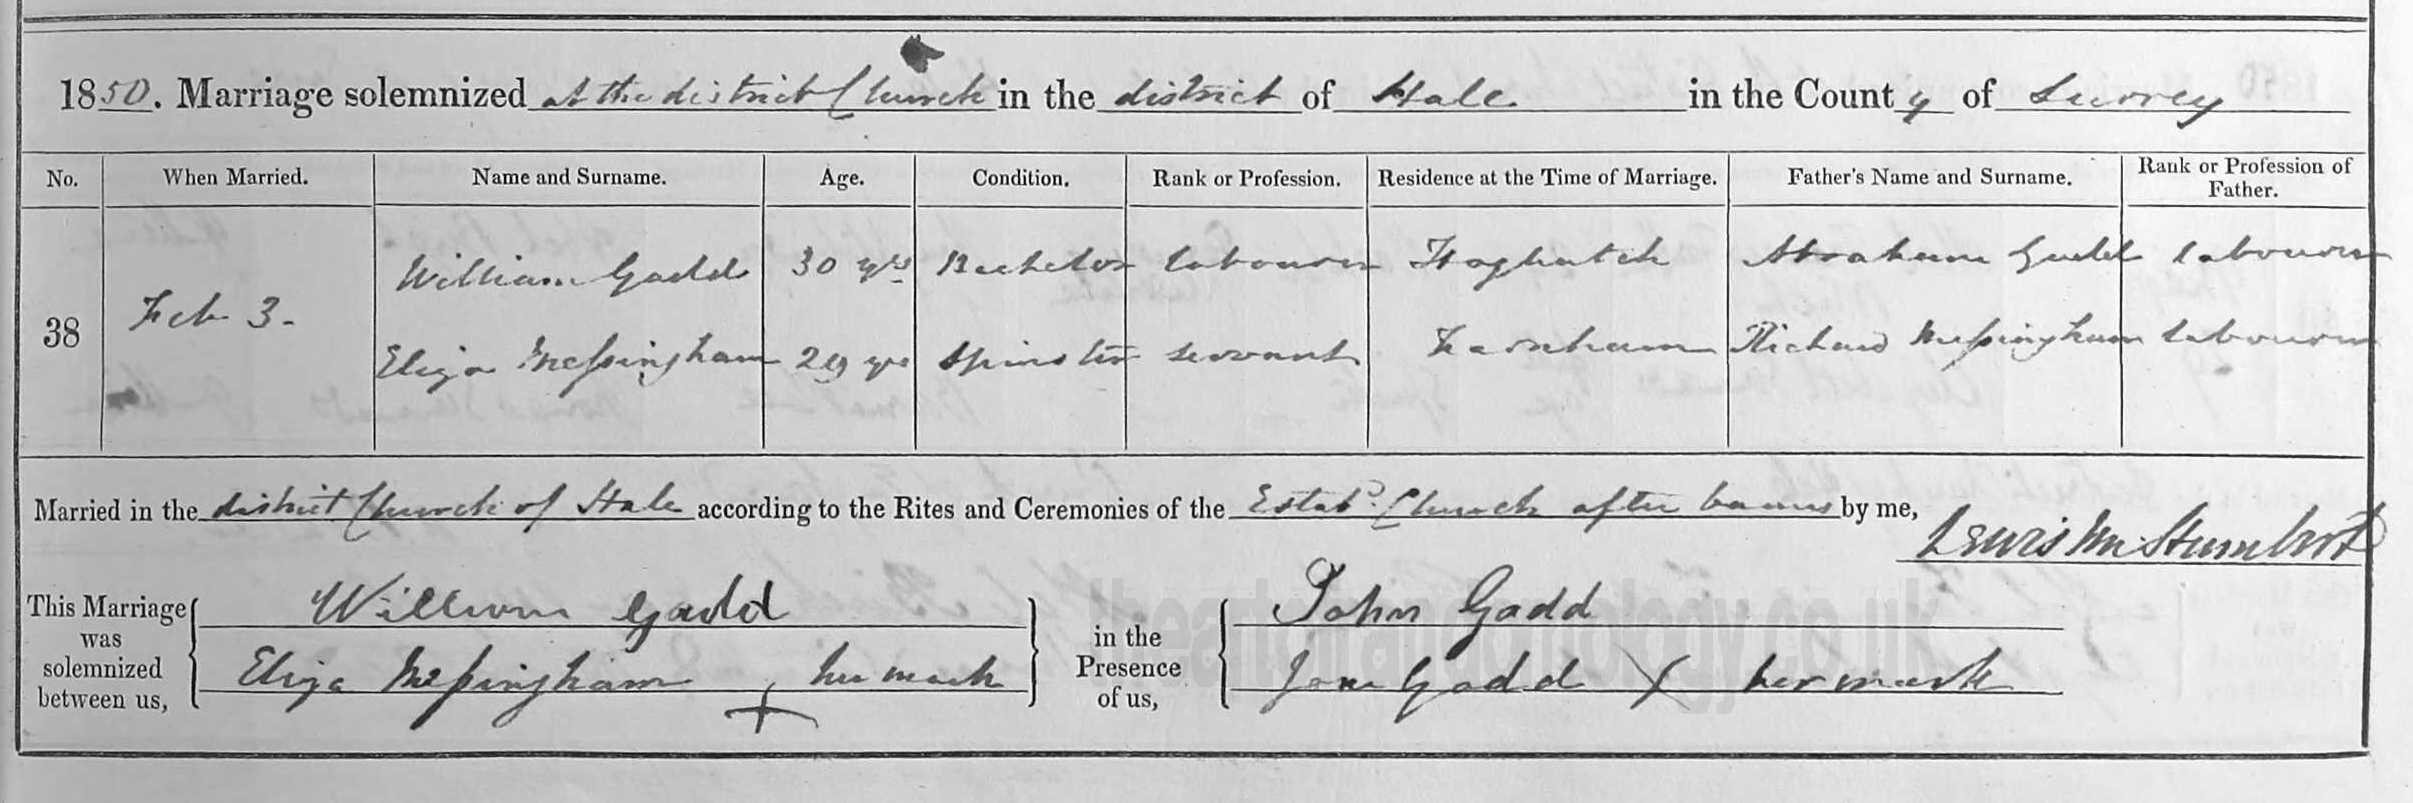 1850. Marriage solemnized at the district Church in the district of Hale in the County of Surrey
No. When Married. Name and Surname. Age. Condition. Rank or Profession. Residence at the Time of Marriage. Father's Name and Surname. Rank or Profession of Father.
William Gadd 30 yrs Bachelor labourer Hoghatch Abraham Gadd labourer
38 Feb 3.
Eliza Messingham 29 yrs Spinster servant Farnham Richard Messingham labourer
Married in the district Church of Hale according to the Rites and Ceremonies of the Estabd. Church after banns by me,
Lewis Wm
This Marriage was solemnized between us,
William Gadd
Eliza Messingham X her mark
in the Presence of us,
John Gadd
Jane Gadd X her mark
theartofrandomology.co.uk